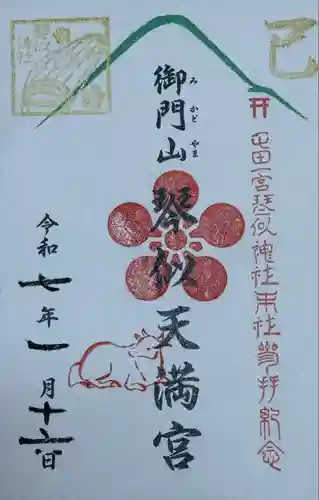 己
屯田一宮琴似神社末社参拝紀念
御門山
みかどやま
琴似天満宮
令和七年一月十六日